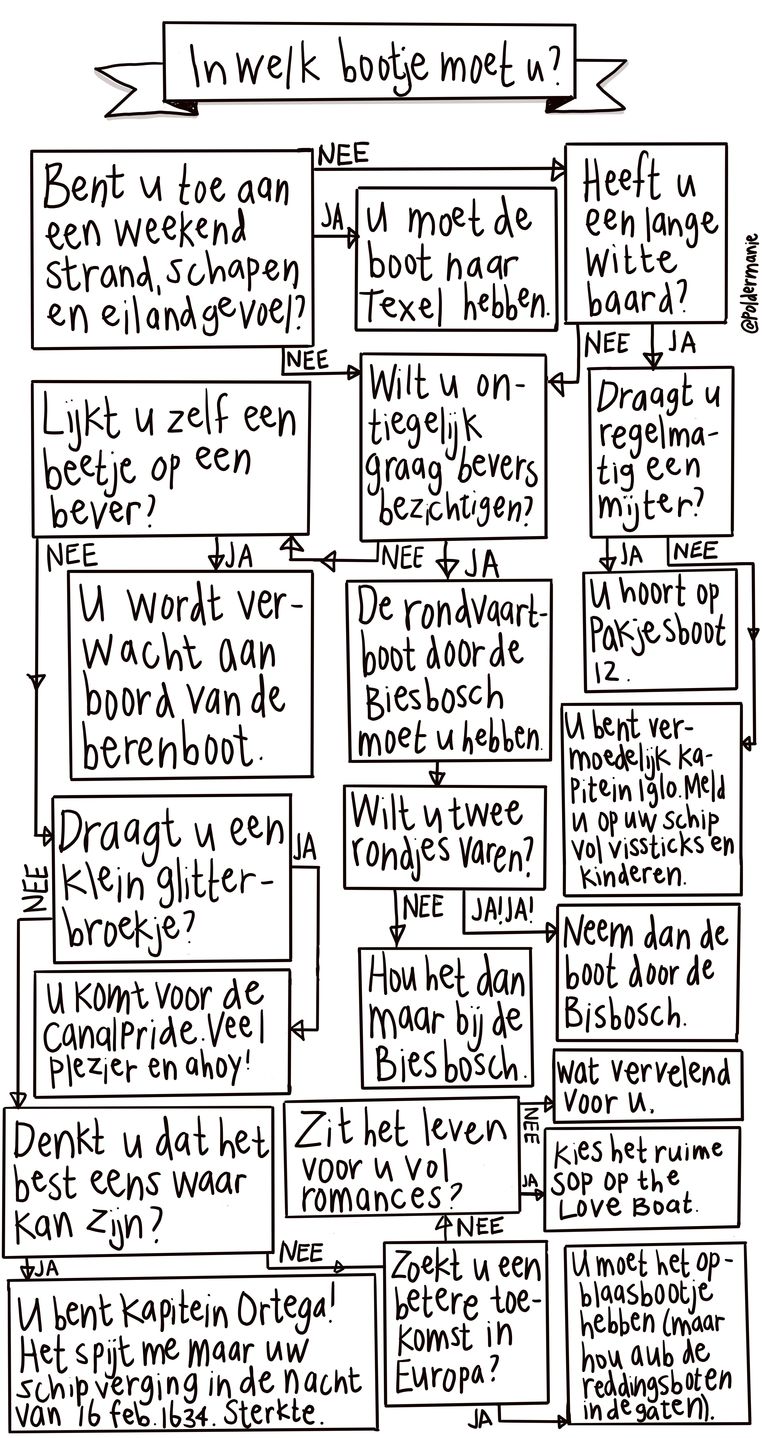 In welk bootje moet u?
Bent u toe aan
een weekend
strand, schapen
en eilandgevoel?
NEE
JA
U moet de
boot naar
Texel hebben.
Heeft u
een lange
witte
baard?
@Poldermanie
NEE
NEE
JA
Lijkt u zelf een
beetje op een
bever?
Wilt u on-
tiegelijk
graag bevers
bezichtigen?
Draagt u
regelma-
tig een
mijter?
NEE
JA
NEE
JA
JA
NEE
U wordt ver-
wacht aan
boord van de
berenboot.
De rondvaart-
boot door de
Biesbosch
moet u hebben.
U hoort op
Pakjesboot
12.
U bent ver-
moedelijk Ka-
pitein Iglo. Meld
u op uw schip
vol vissticks en
kinderen.
Draagt u een
klein glitter-
broekje?
JA
NEE
Wilt u twee
rondjes varen?
NEE
JA!JA!
U komt voor de
Canalpride. Veel
plezier en ahoy!
Hou het dan
maar bij de
Biesbosch.
Neem dan de
boot door de
Bisbosch.
Denkt u dat het
best eens waar
kan zijn?
JA
NEE
Zit het leven
voor u vol
romances?
NEE
JA
Wat vervelend
voor u.
Kies het ruime
sop op the
Love Boat.
NEE
U bent Kapitein Ortega!
Het spijt me maar uw
schip verging in de nacht
van 16 feb. 1634. Sterkte.
Zoekt u een
betere toe-
komst in
Europa?
JA
U moet het op-
blaasbootje
hebben (maar
hou aub de
reddingsboten
in de gaten).